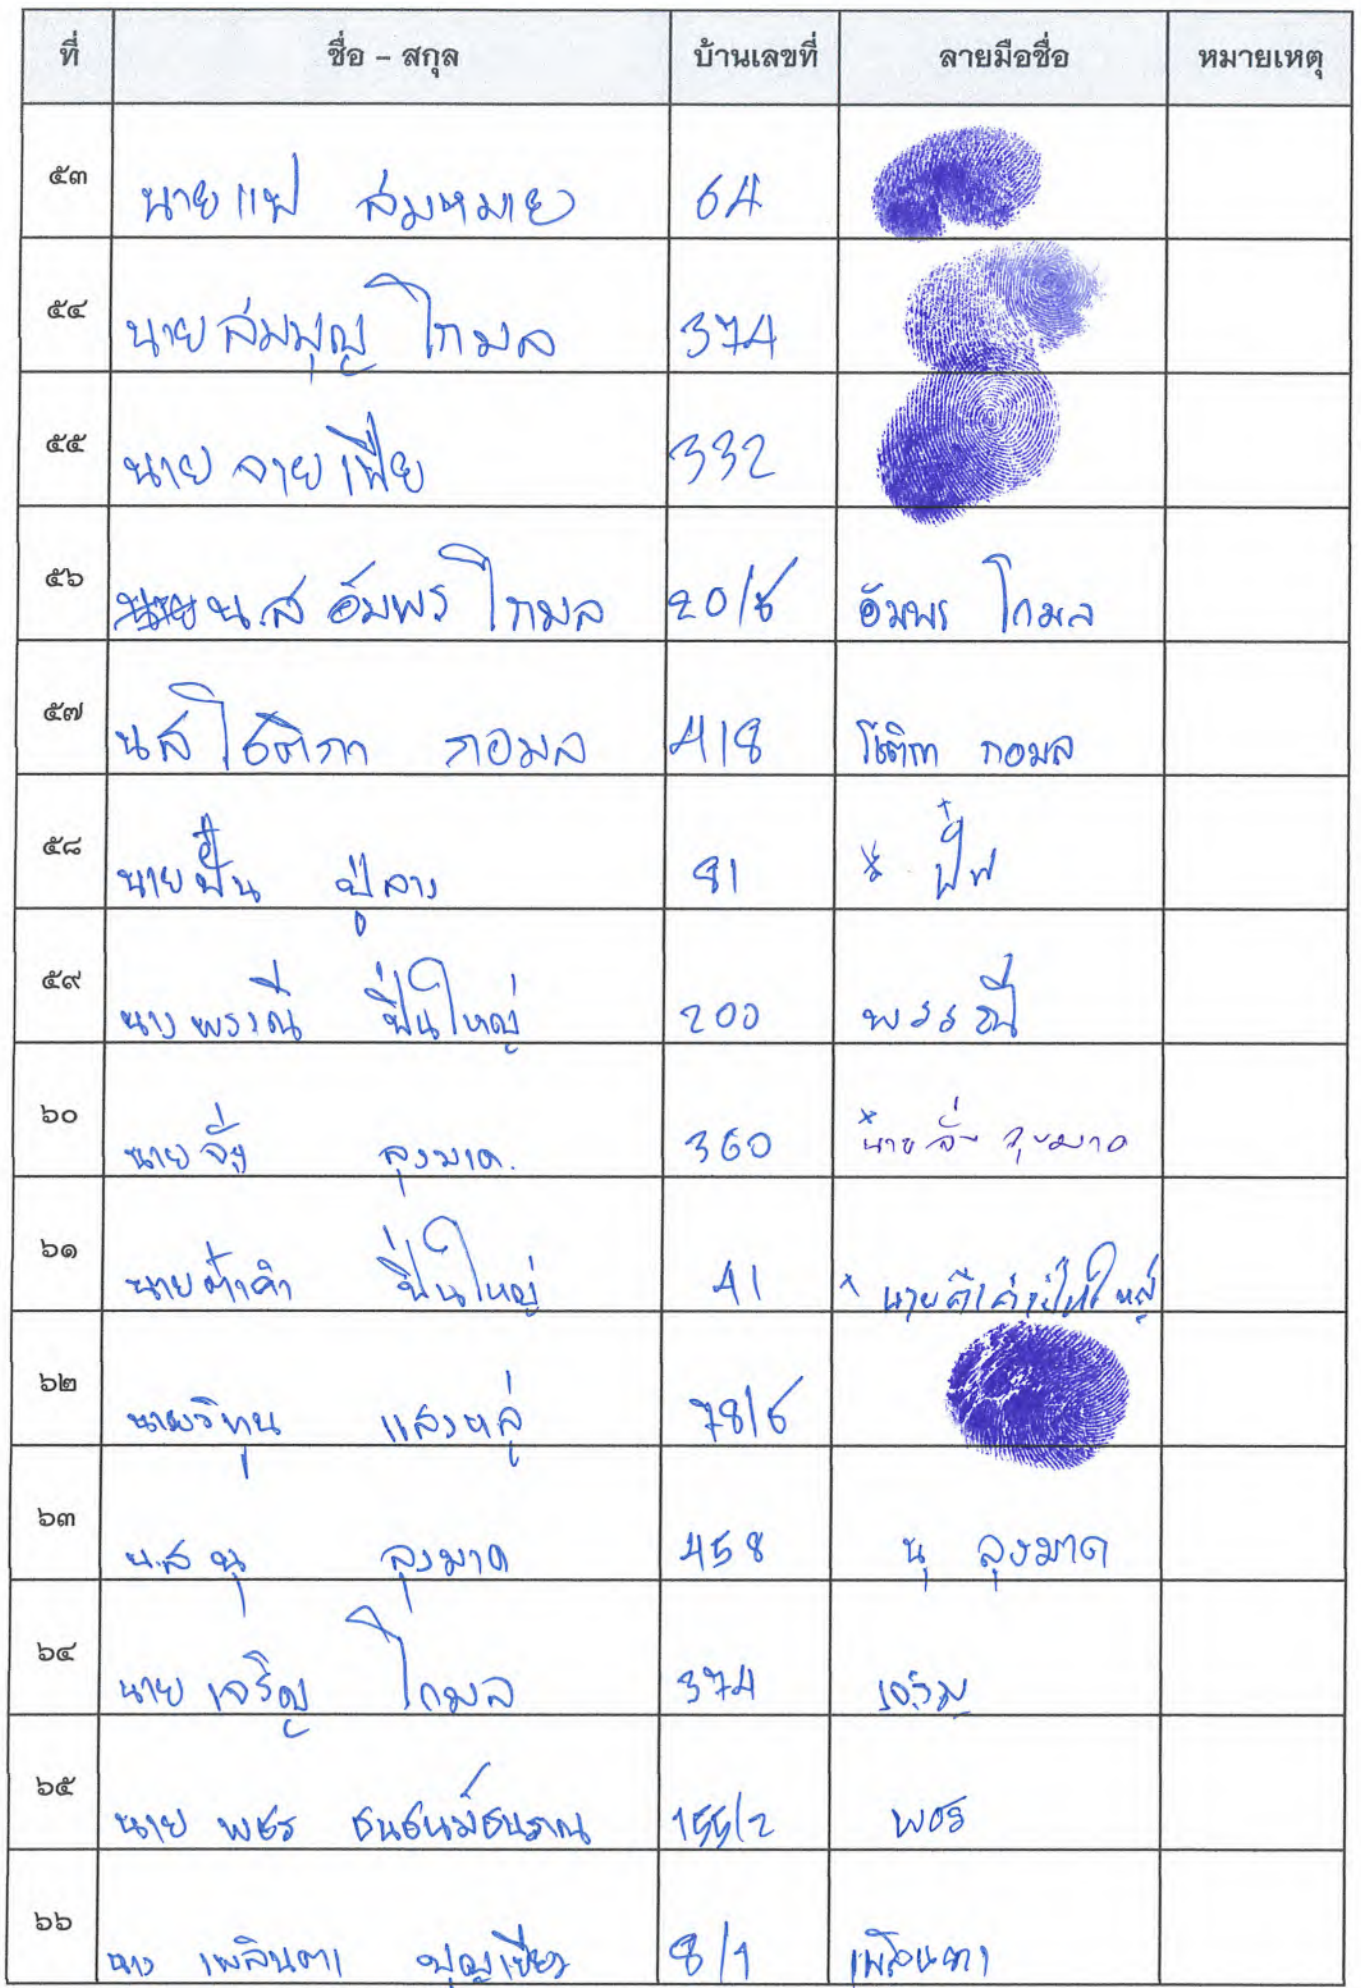 ที่ ชื่อ – สกุล บ้านเลขที่ ลายมือชื่อ หมายเหตุ
๕๓ นายแฟ สมหมาย 64
๕๔ นายสมบุญ โกมล 374
๕๕ นาย จายเฟีย 332
๕๖ น.ส อัมพร โกมล 20/6 อัมพร โกมล
๕๗ นส โชติกา กอมล 418 โชติกา กอมล
๕๘ นายปั๋น ปู่ลาง 81
๕๙ นาง พรรณี ปิ่นใหญ่ 200 พรรณี
๖๐ นาย ลุงมาด. 360 นาย ลุงมาด
๖๑ นาย ปิ่นใหญ่ 41 นาย
๖๒ นายวิทุน แสงหลู่ 78/6
๖๓ น.ส นุ ลุงมาด 458 นุ ลุงมาด
๖๔ นาย เจริญ โกมล 374
๖๕ นาย พชร 155/2 พชร
๖๖ นาง เพลินตา 8/1 เพลินตา